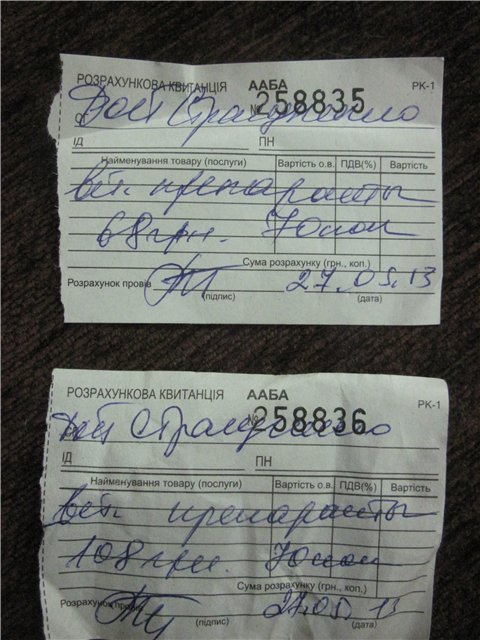 РОЗРАХУНКОВА КВИТАНЦІЯ ААБА РК-1
№ 258835
ІД ПН
Найменування товару (послуги) Вартість о.в. ПДВ(%) Вартість
вет. препараты
68 грн.
Сума розрахунку (грн., коп.)
Розрахунок провів 27.05.13
(підпис) (дата)
РОЗРАХУНКОВА КВИТАНЦІЯ ААБА РК-1
№ 258836
ІД ПН
Найменування товару (послуги) Вартість о.в. ПДВ(%) Вартість
вет. препараты
108 грн.
Сума розрахунку (грн., коп.)
Розрахунок провів 27.05.13
(підпис) (дата)